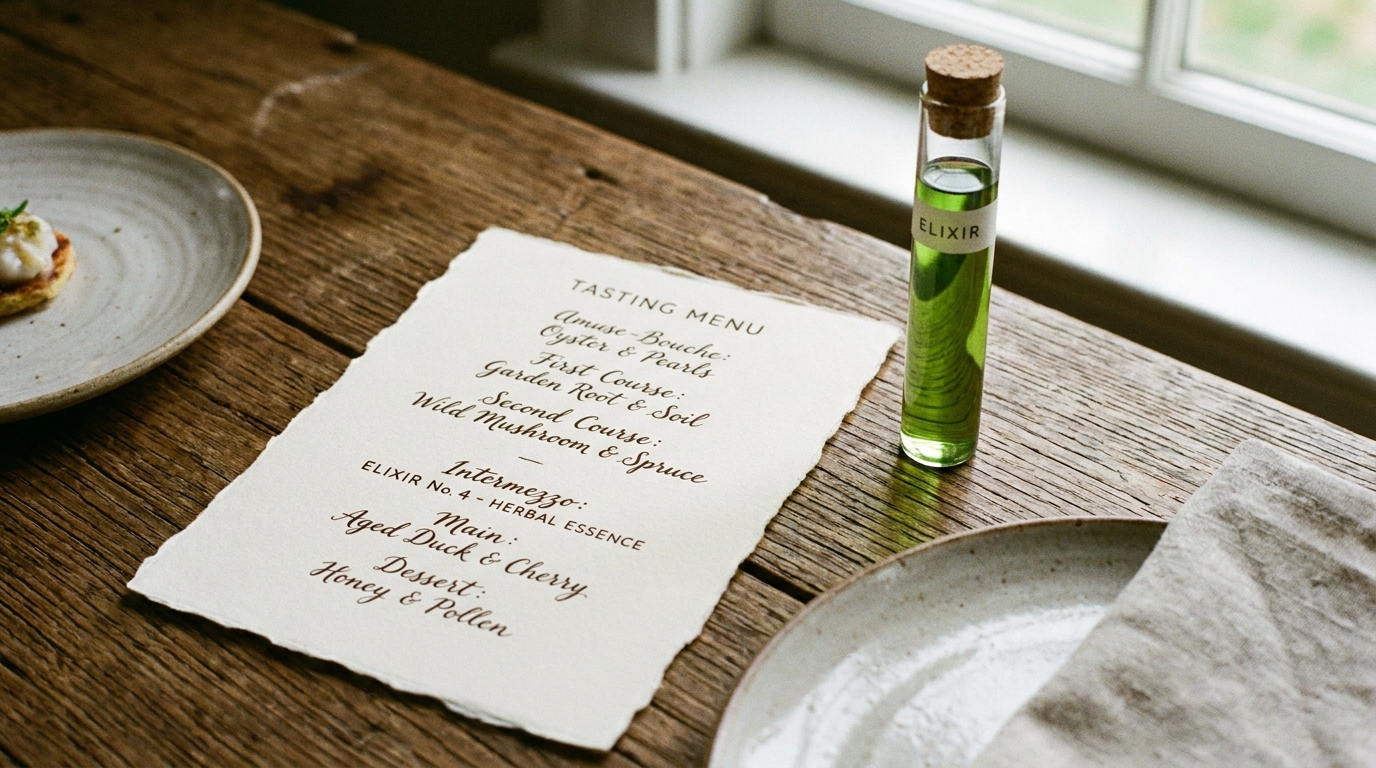 TASTING MENU
Amuse-Bouche:
Oyster & Pearls
First Course:
Garden Root & Soil
Second Course:
Wild Mushroom & Spruce
—
Intermezzo:
ELIXIR No. 4 - HERBAL ESSENCE
Main:
Aged Duck & Cherry
Dessert:
Honey & Pollen
ELIXIR